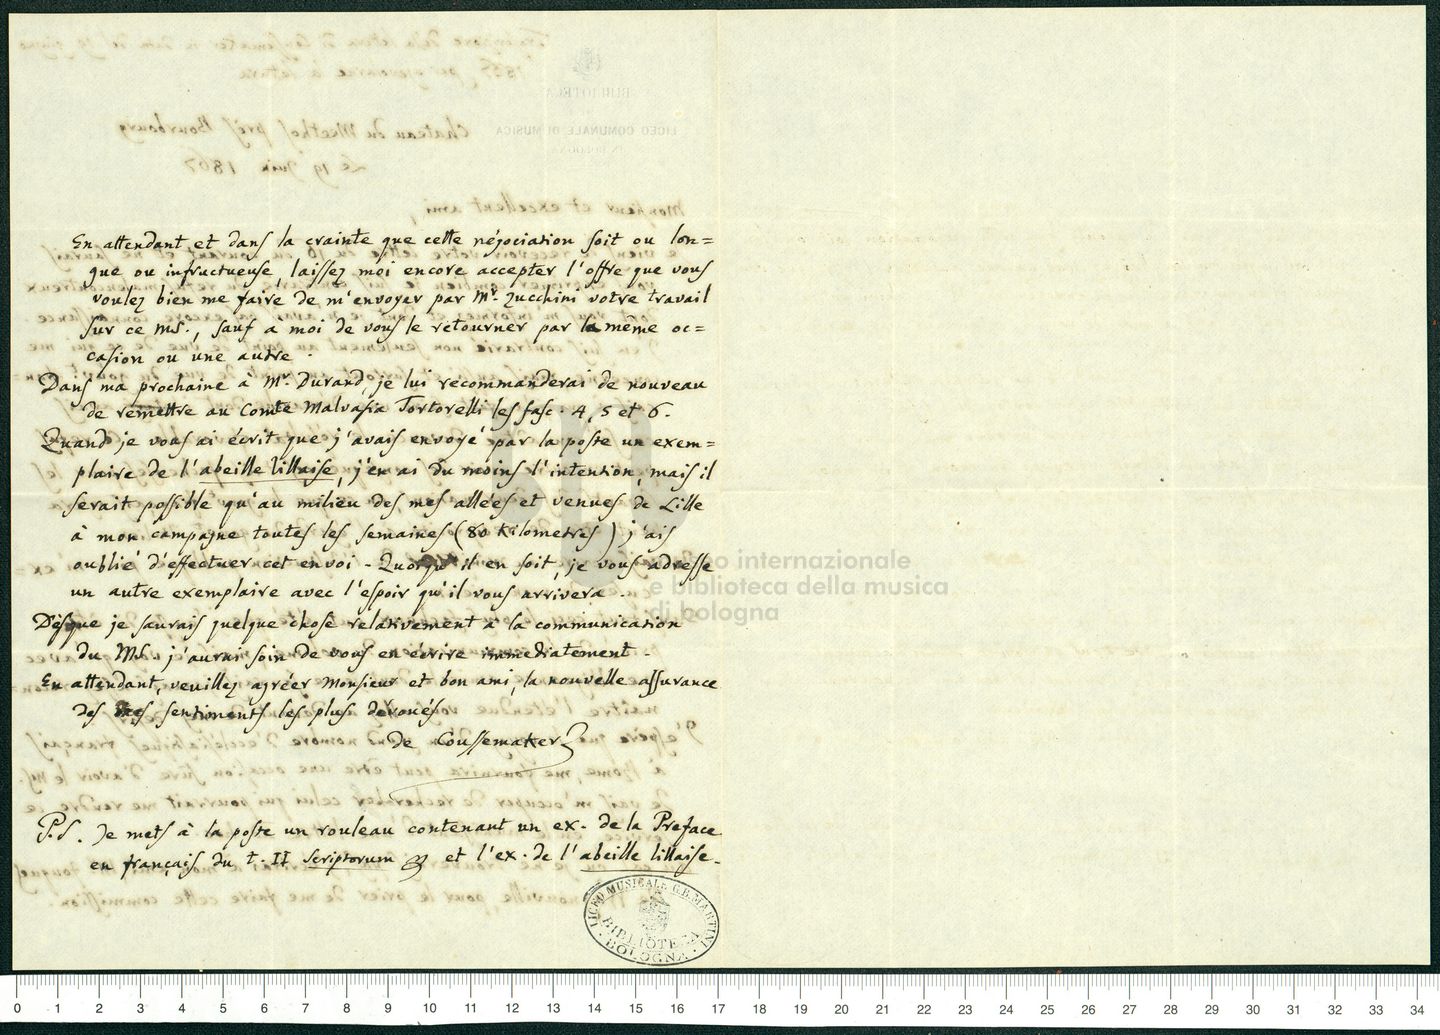 En attendant et dans la crainte que cette négociation soit ou lon=
gue ou infructueuse, laissez moi encore accepter l'offre que vous
voulez bien me faire de m'envoyer par Mr. Zucchini votre travail
sur ce MS., sauf a moi de vous le retourner par la même oc=
casion ou une autre.
Dans ma prochaine à Mr. Durand, je lui recommanderai de nouveau
de remettre au Comte Malvasia Tortorelli les fasc. 4, 5 et 6.
Quand je vous ai écrit que j'avais envoyé par la poste un exem=
plaire de l'abeille lillaise, j'en ai du moins l'intention, mais il
serait possible qu'au milieu des mes allées et venues de Lille
à mon campagne toutes les semaines (80 Kilometres) j'ais
oublié d'effectuer cet envoi. Quoiqu'il en soit, je vous adresse
un autre exemplaire avec l'espoir qu'il vous arrivera.
Dèsque je saurais quelque chose relativement à la communication
du MS. j'aurai soin de vous en écrire immediatement.
En attendant, veuillez agréer Monsieur et bon ami, la nouvelle assurance
des mes sentiments les plus devoués
de Coussemaker
P.S. Je mets à la poste un rouleau contenant un ex. de la Preface
en français du t. II Scriptorum et l'ex. de l'abeille lillaise.
LICEO MUSICALE G.B. MARTINI
BIBLIOTECA
BOLOGNA
museo internazionale
e biblioteca della musica
di bologna
0 1 2 3 4 5 6 7 8 9 10 11 12 13 14 15 16 17 18 19 20 21 22 23 24 25 26 27 28 29 30 31 32 33 34